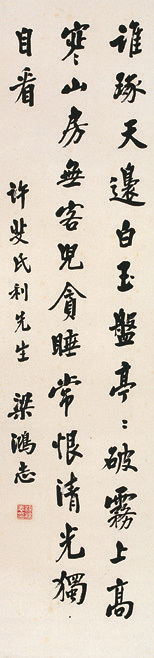 谁琢天邊白玉盤亭〻破霧上高
寒山房無客兒貪睡常恨清光獨
自看
許斐氏利先生
梁鴻志